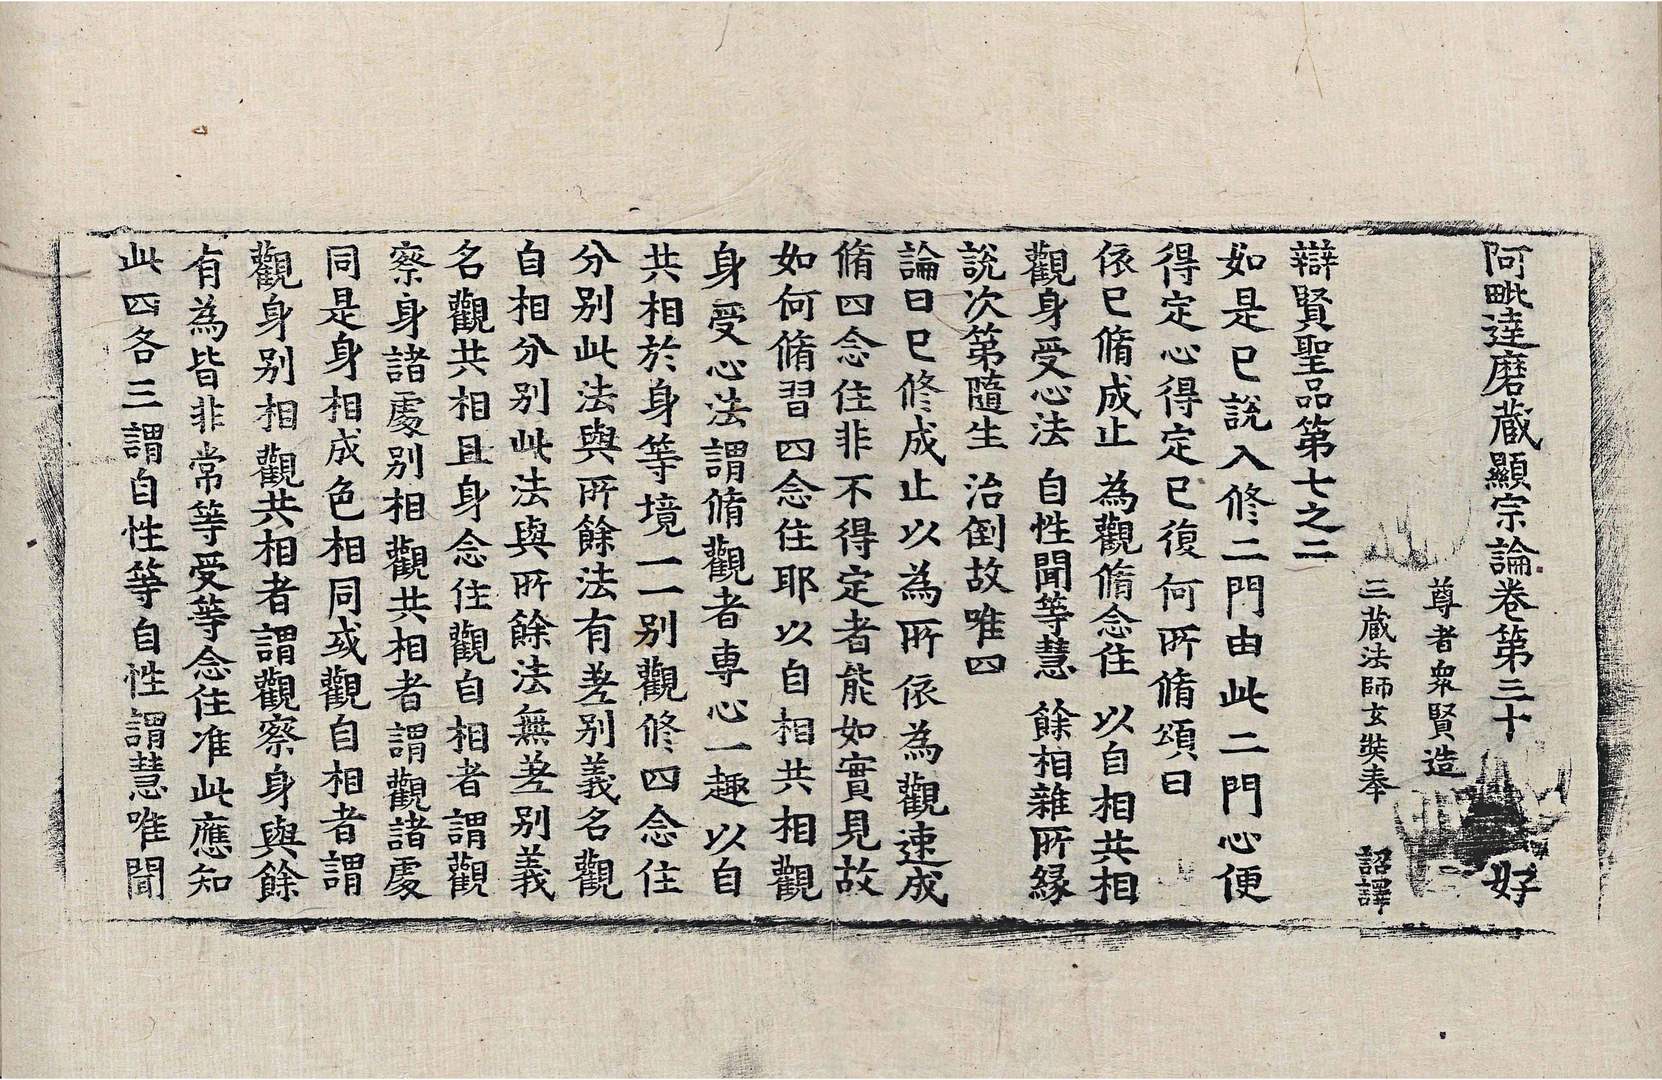 阿毗達磨藏顯宗論卷第三十 好
尊者衆賢造
三藏法師玄奘奉 詔譯
辯賢聖品第七之二
如是已說入修二門由此二門心便
得定心得定已復何所脩頌曰
依已脩成止 為觀脩念住 以自相共相
觀身受心法 自性聞等慧 餘相雜所緣
說次第隨生 治倒故唯四
論曰已修成止以為所依為觀速成
脩四念住非不得定者能如實見故
如何脩習四念住耶以自相共相觀
身受心法謂脩觀者專心一趣以自
共相於身等境一一別觀修四念住
分別此法與所餘法有差別義名觀
自相分別此法與所餘法無差別義
名觀共相且身念住觀自相者謂觀
察身諸處別相觀共相者謂觀諸處
同是身相成色相同或觀自相者謂
觀身別相觀共相者謂觀察身與餘
有為皆非常等受等念住准此應知
此四各三謂自性等自性謂慧唯聞